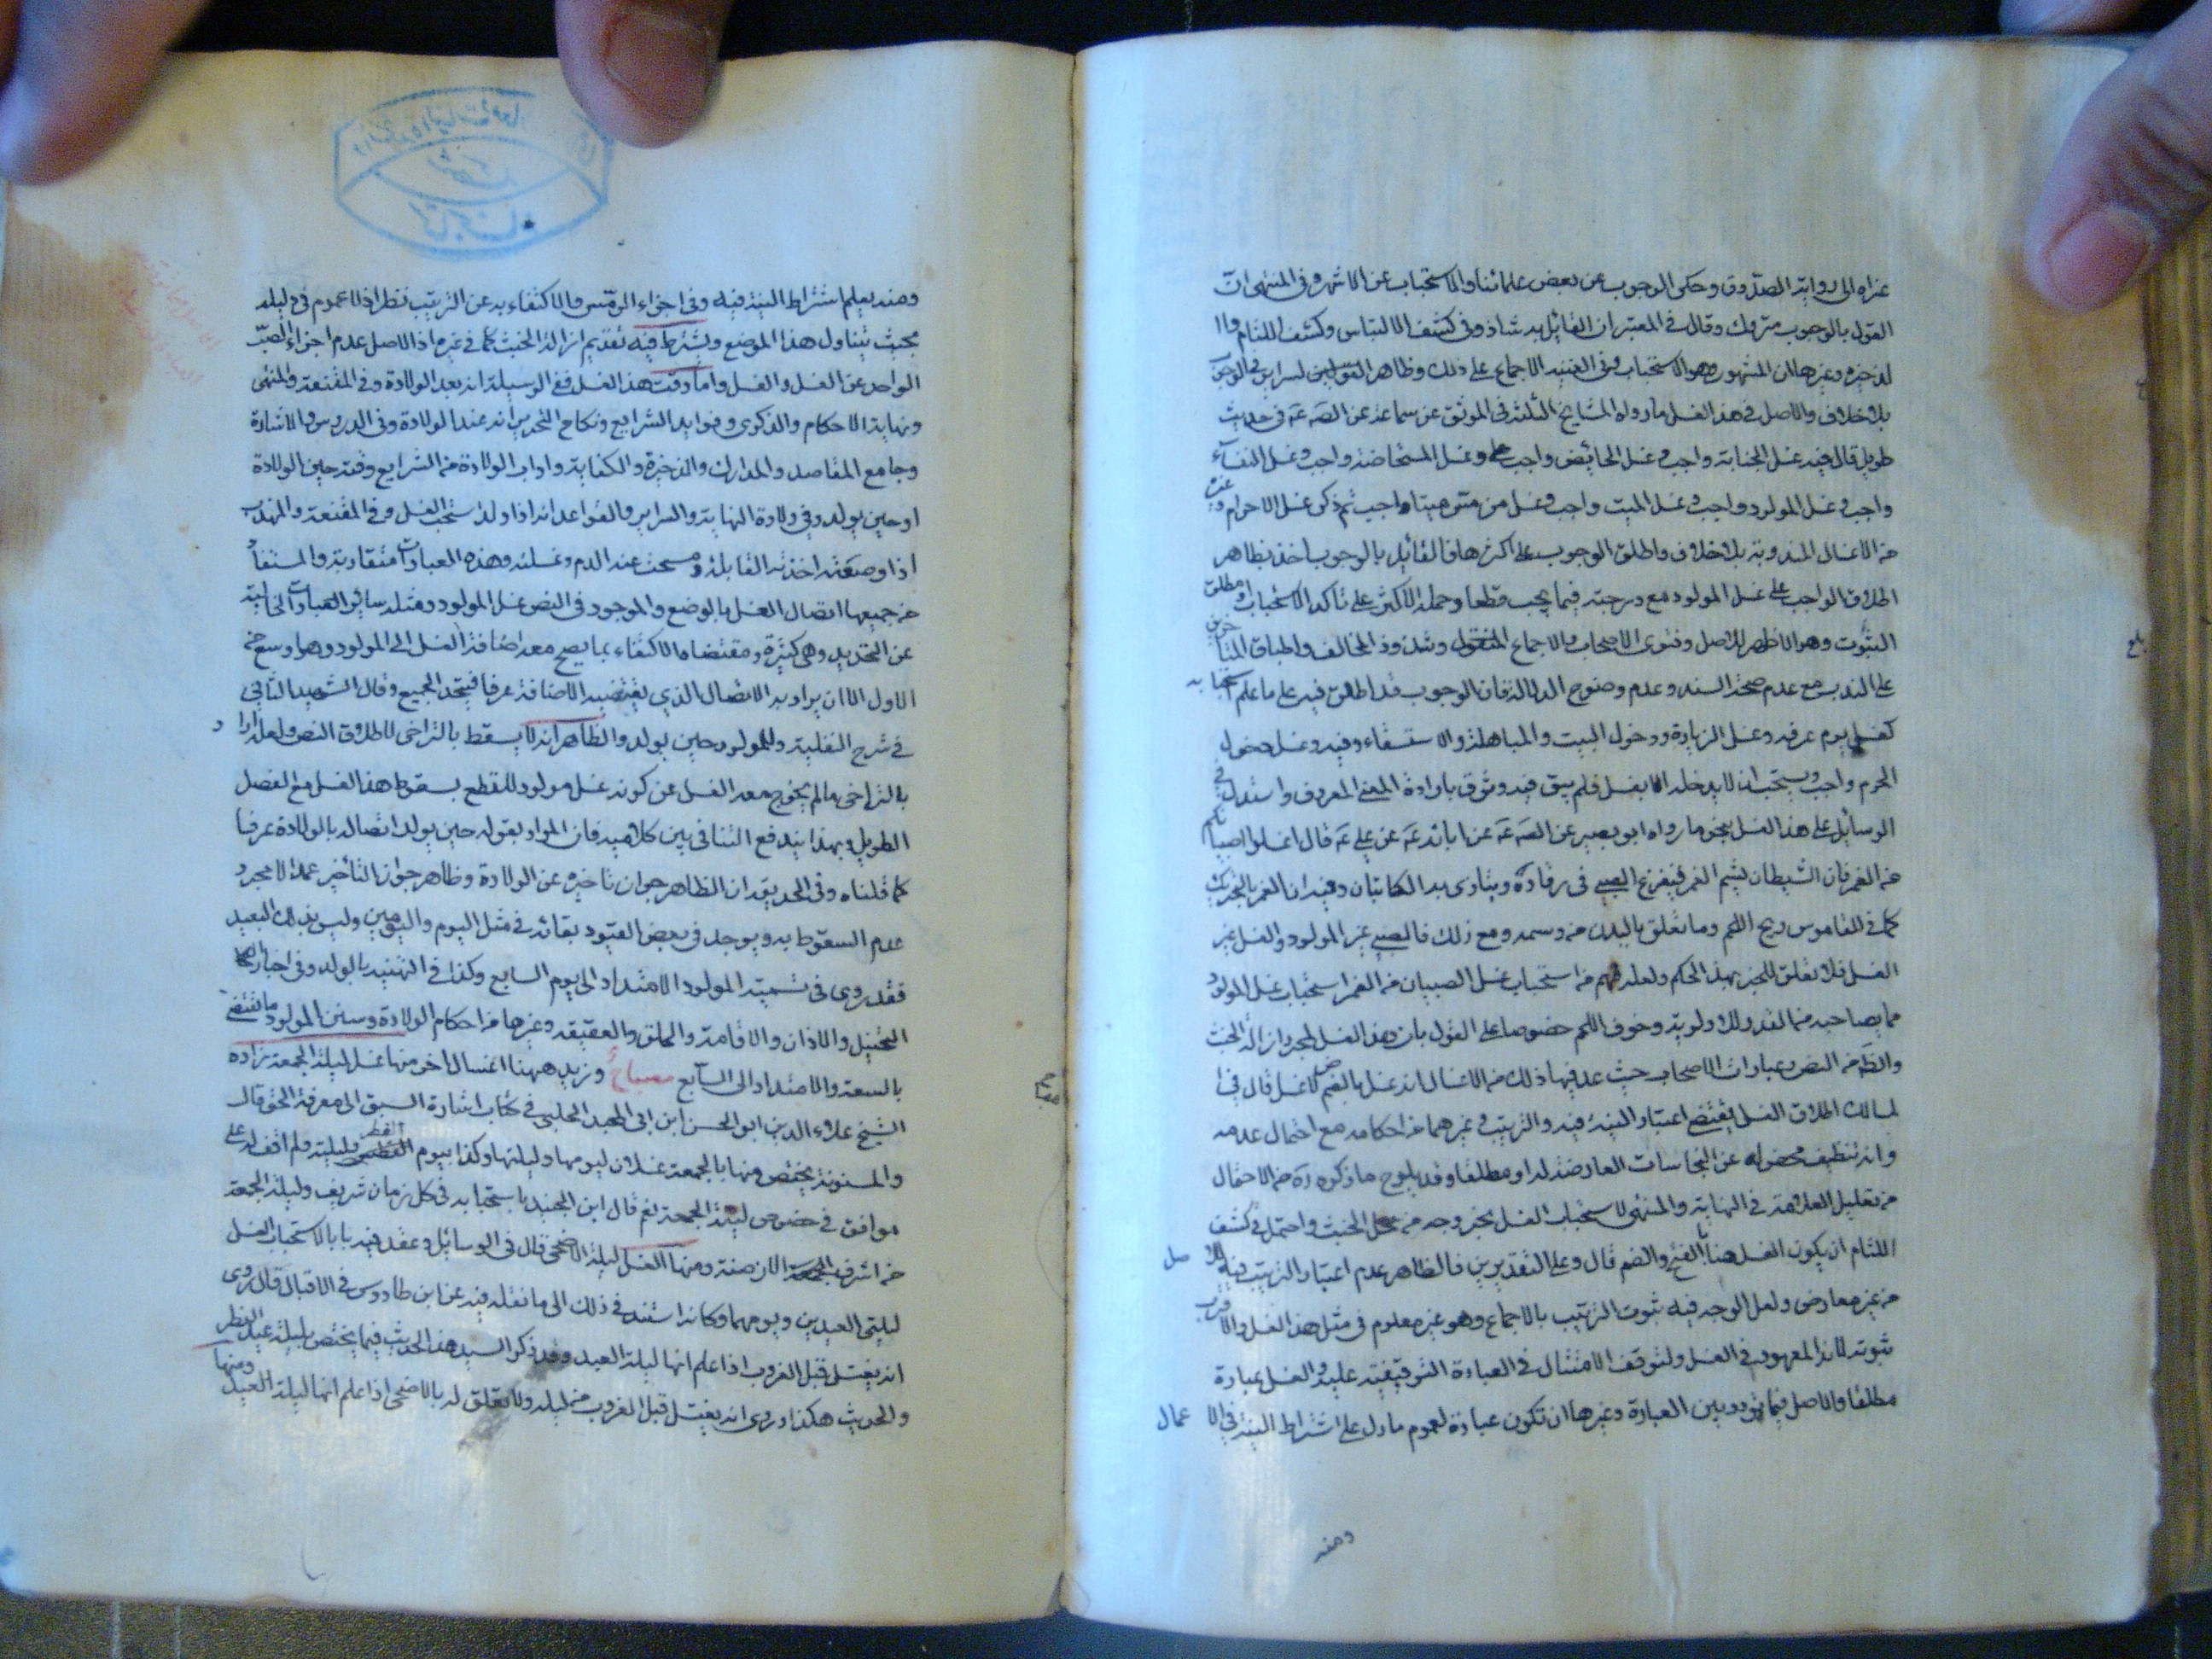 عزاه الى رواية الصدوق وحكى الوجوب عن بعض علمائنا والاستحباب عن الاشهر وفي المنتهى ان
القول بالوجوب متروك وقال في المعتبر ان القائل به شاذ وفي كشف الالتباس وكشف اللثام وا
لذخيرة وغيرها ان المشهور هو الاستحباب وفي الغنية الاجماع على ذلك وظاهر السراير نفي الوجوب
بلا خلاف والاصل في هذا الغسل ما رواه المشايخ الثلثة في الموثق عن سماعة عن الصه عه في حديث
طويل قال فيه غسل الجنابة واجب وغسل الحائض واجب وغسل المستحاضة واجب وغسل النفساء
واجب وغسل المولود واجب وغسل الميت واجب وغسل من مس ميتا واجب ثم ذكر غسل الاحرام وغيره
من الاغسال المندوبة بلا خلاف واطلق الوجوب على اكثرها فالقائل بالوجوب اخذ بظاهر
اطلاق الواجب على غسل المولود مع درجته فيما يجب قطعا وحمله الاكثر على تاكد الاستحباب او مطلق
الثبوت وهو الاظهر للاصل وفتوى الاصحاب والاجماع المنقول وشذوذ المخالف واطباق المتاخرين
على الندب مع عدم صحة السند وعدم وضوح الدلالة فان الوجوب قد اطلق فيه على ما علم استحبابه
كغسل يوم عرفه وغسل الزيارة ودخول البيت والمباهلة والاستسقاء وفيه وغسل دخول
الحرم واجب ويستحب ان لا يدخله الا بغسل فلم يبق فيه وثوق بارادة المعنى المعروف واستدل في
الوسائل على هذا الغسل بخبر ما رواه ابو بصير عن الصه عه عن ابائه عه عن علي عه قال اغسلوا صبيانكم
من الغمر فان الشيطان يشم الغمر فيفزع الصبي في رقاده ويتاذى به الكاتبان وفيه ان الغمر بالتحريك
كما في القاموس ريح اللحم وما تعلق باليد من دسمه ومع ذلك فالصبي غير المولود والغسل غير
الغسل فلا تعلق للخبر بهذا الحكم ولعله فهم من استحباب غسل الصبيان من الغمر استحباب غسل المولود
مما يصاحبه من القذر بالاولوية وخوف اللمم خصوصا على القول بان هذا الغسل لمجرد ازالة الخبث
والظه من النص وعبارات الاصحاب حيث عد فيها ذلك من الاغسال انه غسل بالضم لا غسل قال في ا
لمسالك اطلاق الغسل يقتضي اعتبار النية فيه والترتيب وغيرهما من احكامه مع احتمال عدمه
وانه تنظيف محض له عن النجاسات العارضة له او مطلقا وقد يلوح ما ذكره ره من الاحتمال
من تعليل العلامة في النهاية والمنتهى لاستحباب الغسل بخروجه من محل الخبث واحتمل في كشف
اللثام ان يكون الغسل هنا بالفتح والضم قال وعلى التقديرين فالظاهر عدم اعتبار الترتيب فيه للاصل
من غير معارض ولعل الوجه فيه ثبوت الترتيب بالاجماع وهو غير معلوم في مثل هذا الغسل والاقرب
ثبوته لانه المعهود في الغسل ولتوقف الامتثال في العبادة التوقيفية عليه والغسل عبادة
مطلقا والاصل فيما يتردد بين العبادة وغيرها ان تكون عبادة لعموم ما دل على اشتراط النية في الاعمال
ومنه
بلغ
ومنه يعلم اشتراط النية فيه وفي اجزاء الرمس والاكتفاء به عن الترتيب نظر اذ لا عموم في دليله
بحيث يتناول هذا الموضع ويشترط فيه تقديم ازالة الخبث كما في غيره اذ الاصل عدم اجزاء الصب
الواحد عن الغسل والغسل واما وقت هذا الغسل ففي الوسيلة انه بعد الولادة وفي المقنعة والمنتهى
ونهاية الاحكام والذكرى وفوايد الشرايع ونكاح التحرير انه عند الولادة وفي الدروس والاشارة
وجامع المقاصد والمدارك والذخيرة والكفاية واداب الولادة من الشرايع وقته حين الولادة
او حين يولد وفي ولادة النهاية والسراير والقواعد انه اذا ولد استحب الغسل وفي المقنعة والمهذب
اذا وضعته اخذته القابلة ومسحت عنه الدم وغسلته وهذه العبارات متقاربة والمستفاد
من جميعها اتصال الغسل بالوضع والموجود في النص غسل المولود ومثله ساير العبارات الخالية
عن التحديد وهي كثيرة ومقتضاها الاكتفاء بما يصح معه اضافة الغسل الى المولود وهو اوسع من
الاول الا ان يراد به الاتصال الذي يقتضيه الاضافة عرفا فيتحد الجميع وقال الشهيد الثاني
في شرح النفلية وللمولود حين يولد والظاهر انه لا يسقط بالتراخي لاطلاق النص ولعله اراد
بالتراخي ما لم يخرج معه الغسل عن كونه غسل مولود للقطع بسقوط هذا الغسل مع الفصل
الطويل وبهذا يندفع التنافي بين كلاميه فان المراد بقوله حين يولد اتصاله بالولادة عرفا
كما قلناه وفي الحديقه ان الظاهر جواز تاخيره عن الولادة وظاهر جواز التاخير عمدا لا مجرد
عدم السقوط به ويوجد في بعض القيود بقائه في مثل اليوم واليومين وليس بذلك البعيد
فقد روى في تسمية المولود الامتداد الى يوم السابع وكذا في التهنية بالولد وفي اخبار
التحنيك والاذان والاقامة والحلق والعقيقه وغيرها من احكام الولادة وسنن المولود ما يقتضي
بالسعة والامتداد الى السابع مصباح وزيد ههنا اغسال اخر منها غسل ليلة الجمعة زاده
الشيخ علاء الدين ابو الحسن ابن ابي المجد الحلبي في كتاب اشارة السبق الى معرفة الحق قال
والمسنونة يختص منها بالجمعة غسلان ليومها وليلتها وكذا يوم الفطر وليلته ولم اقف له على
موافق في خصوص ليلة الجمعة نعم قال ابن الجنيد باستحبابه في كل زمان شريف وليلة الجمعة
من اشرف الازمنة ومنها الغسل ليلة الاضحى قال في الوسائل وعقد فيه بابا لاستحباب الغسل
ليلتي العيدين ويومهما وكانه استند في ذلك الى ما نقله فيه عن ابن طاووس في الاقبال قال روى
انه يغتسل قبل الغروب اذا علم انها ليلة العيد وقد ذكر السيد هذا الحديث فيما يختص بليلة عيد الفطر
والحديث هكذا وروى انه يغتسل قبل الغروب من ليله ولا تعلق له بالاضحى اذا علم انها ليلة العيد ومنها